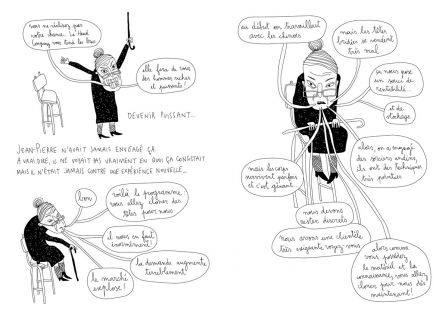 vous ne réalisez pas
votre chance. La Head
Company vous tend les bras
elle fera de vous
des hommes riches
et puissants !
DEVENIR PUISSANT...
JEAN-PIERRE N'AVAIT JAMAIS ENVISAGÉ ÇA.
À VRAI DIRE, IL NE VOYAIT PAS VRAIMENT EN QUOI ÇA CONSISTAIT
MAIS IL N'ÉTAIT JAMAIS CONTRE UNE EXPÉRIENCE NOUVELLE...
bon
voilà le programme
vous allez cloner des
têtes pour nous
il nous en faut
énormément !
la demande augmente
terriblement
le marché
explose !
au début on travaillait
avec les chinois
mais les têtes
bridées se vendent
très mal
ça nous pose
un souci de
rentabilité
et de
stockage
alors, on a engagé
des sorciers indiens,
ils ont des techniques
très pointues
mais les corps
survivent parfois
et c'est gênant
nous devons
rester discrets
nous avons une clientèle
très exigeante voyez-vous
alors comme
vous possédez
le matériel et la
connaissance, vous allez
cloner pour nous dès
maintenant !